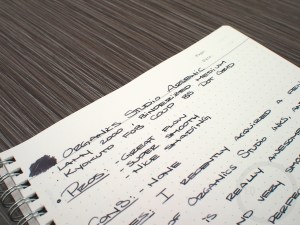 ORGANICS STUDIO ARSENIC
LAMY 2000 : BINDERIZED MEDIUM
KYOKUTO FOB COOP B5 DOT GRID
• PROS: • GREAT FLOW
• SUPER SMOOTH
• NICE SHADING
CONS: • NONE
I RECENTLY ACQUIRED A
OF ORGANICS STUDIO INKS,
IS REALLY AWESOME
AND VERY